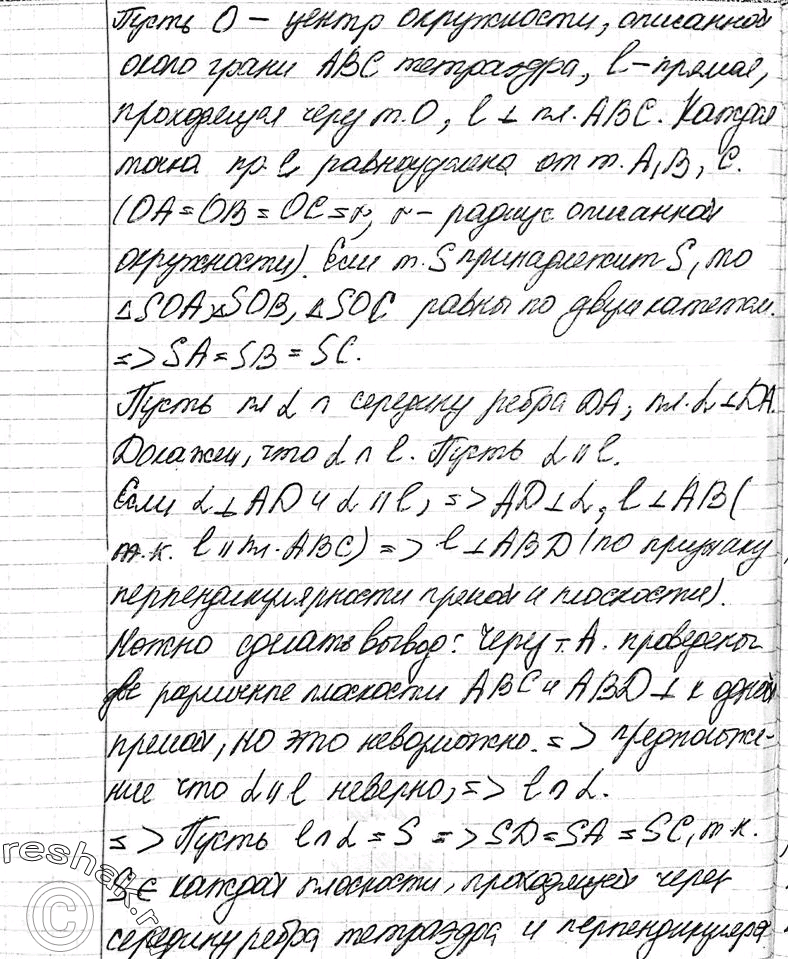 Пусть О – центр окружности, описанной
около грани ABC тетраэдра, l – прямая,
проходящая через т. О, l ⊥ пл. ABC. Каждая
точка пр. l равноудалена от т. A, B, C.
(OA = OB = OC = r, r – радиус описанной
окружности). Если т. S принадлежит S, то
△SOA, △SOB, △SOC равны по двум катетам.
=> SA = SB = SC.
Пусть пл α ∩ середину ребра DA, пл. α ⊥ DA.
Докажем, что α ∩ l. Пусть α || l.
Если α ⊥ AD и α || l, => AD ⊥ α, l ⊥ AB (
т.к. l || пл. ABC) => l ⊥ ABD (по признаку
перпендикулярности прямой и плоскости).
Можно сделать вывод: через т. A. проведены
две различные плоскости ABC и ABD ⊥ к одной
прямой, но это невозможно. => предположе-
ние что α || l неверно, => l ∩ α.
=> Пусть l ∩ α = S => SD = SA = SC, т.к.
S ∈ каждой плоскости, проходящей через
середину ребра тетраэдра и перпендикулярн
reshak.ru
©